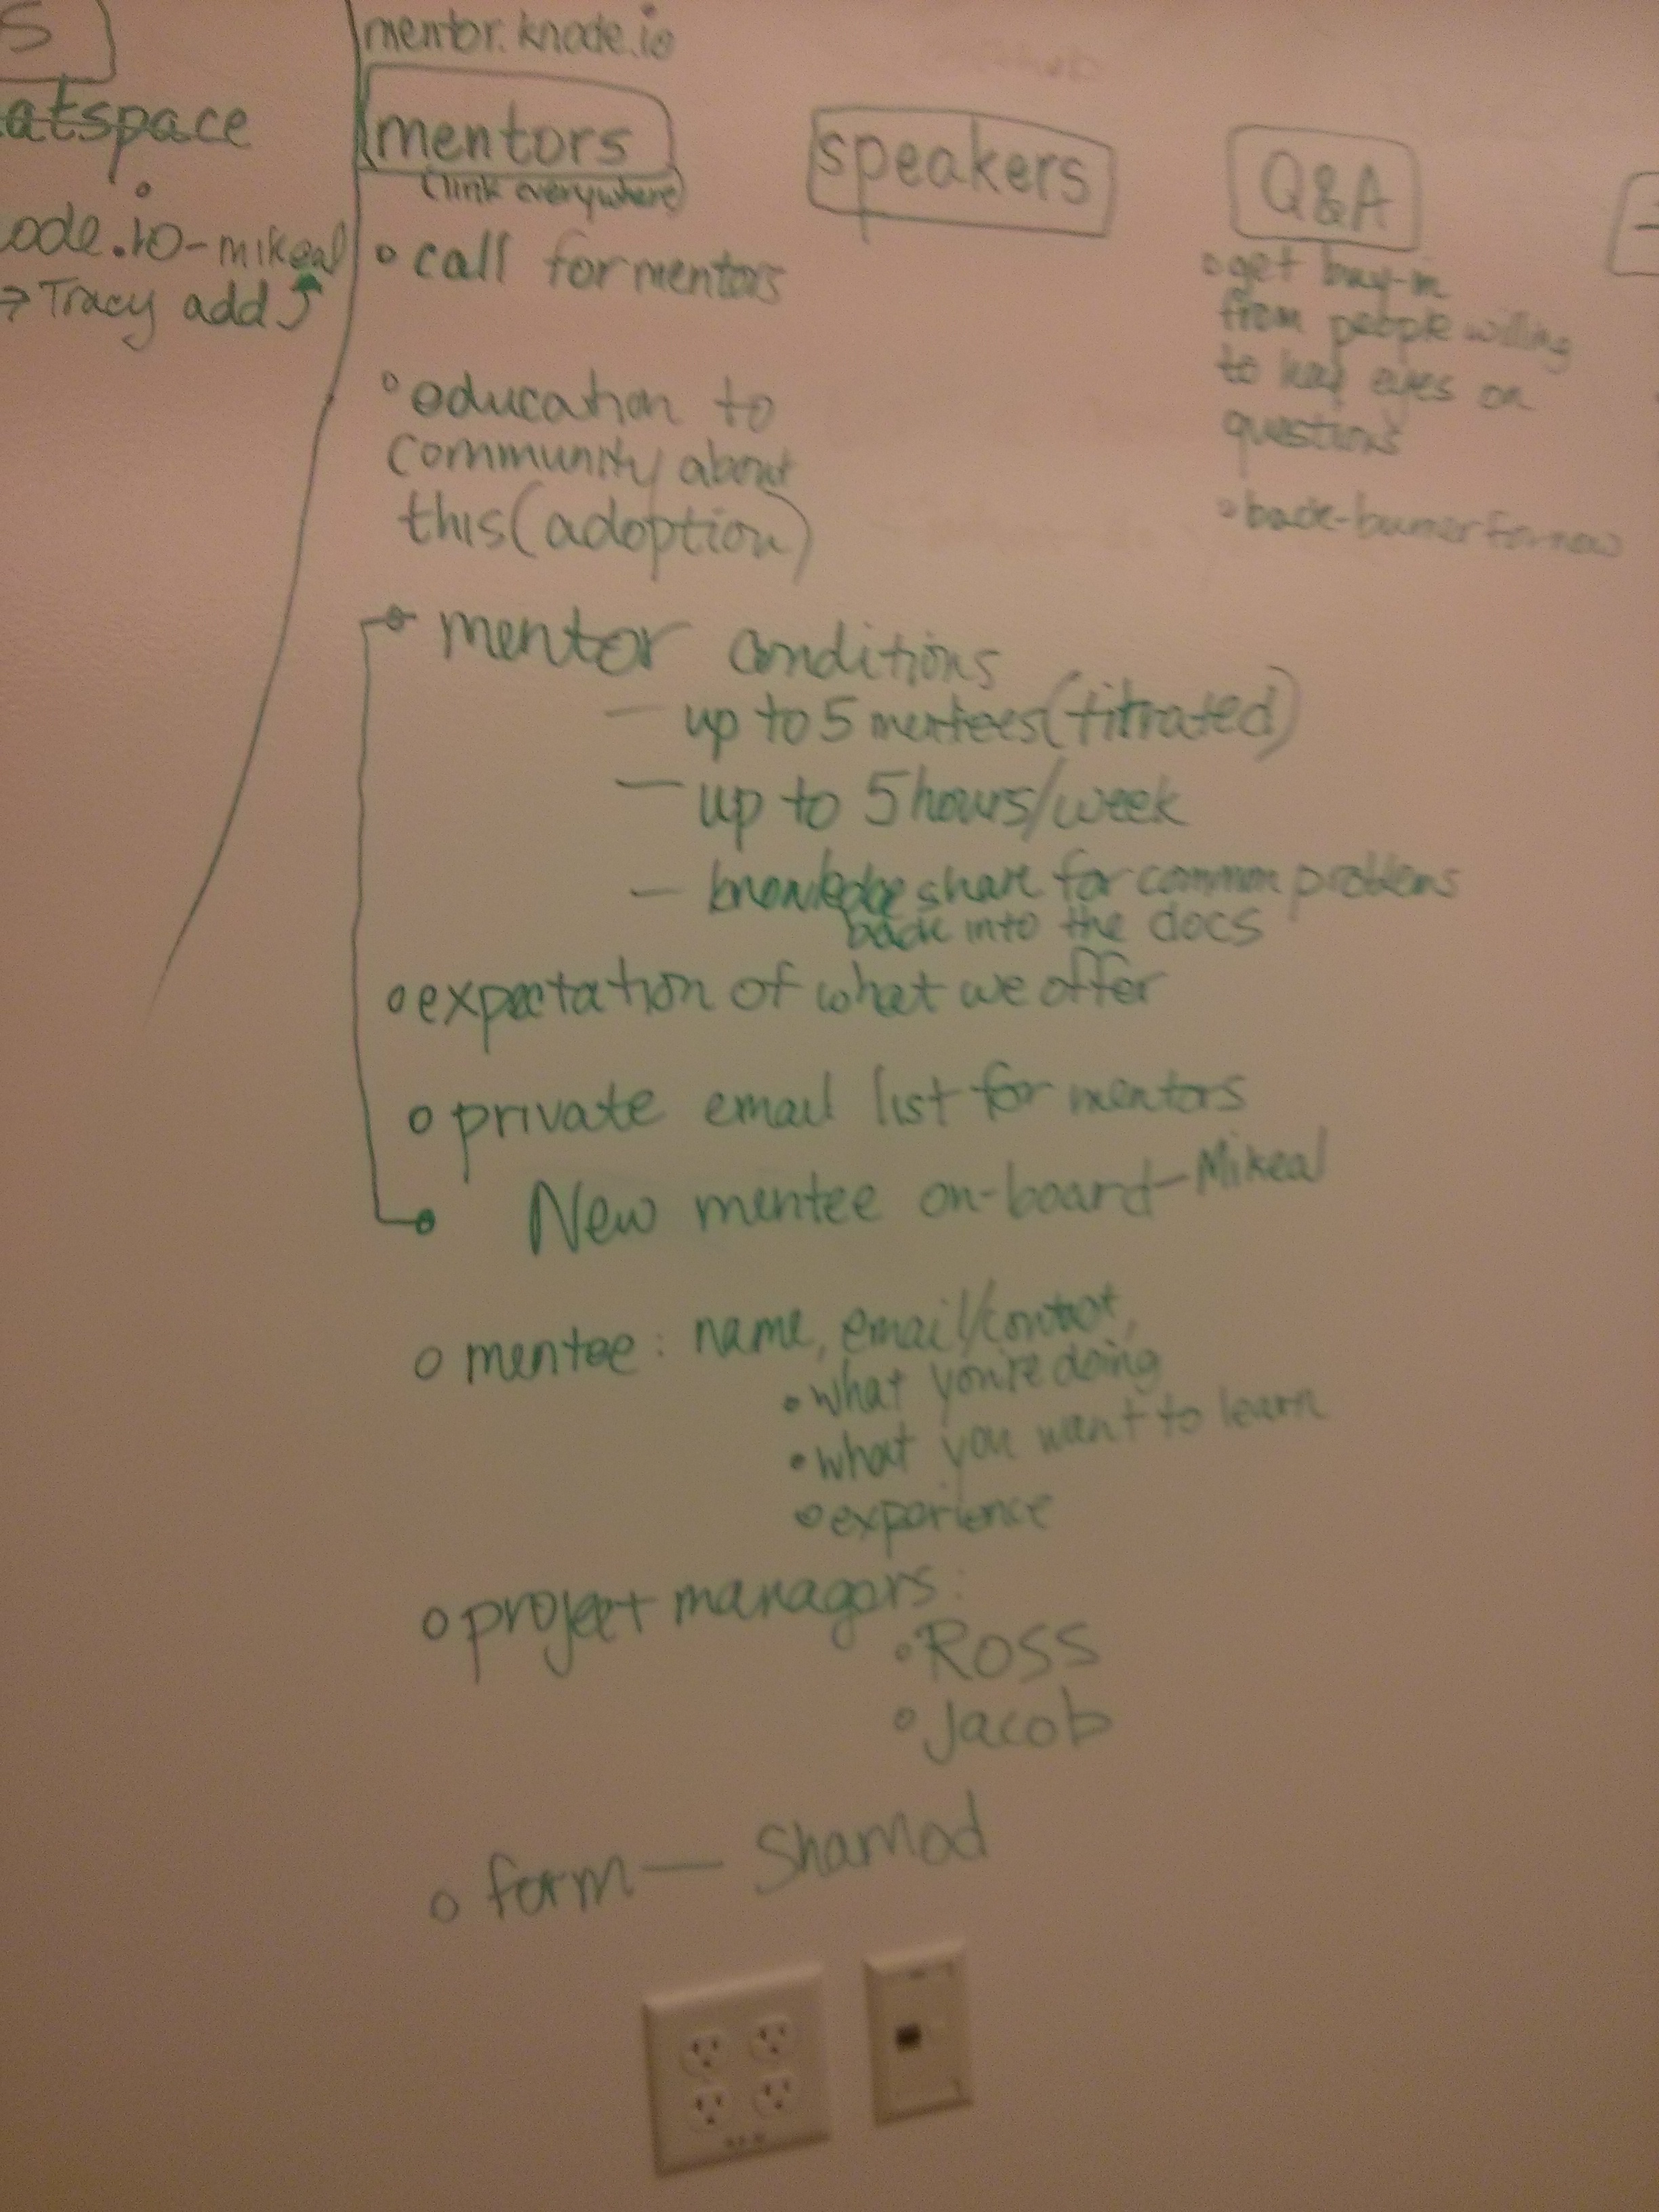 S
atspace
ode.io-mikeal
→ Tracy add
mentor.knode.io
mentors
(link everywhere)
o call for mentors
o education to
community about
this (adoption)
o mentor conditions
— up to 5 mentees (titrated)
— up to 5 hours/week
— knowledge share for common problems
back into the docs
o expectation of what we offer
o private email list for mentors
o New mentee on-board - Mikeal
o mentee: name, email/contact,
• what you're doing
• what you want to learn
o experience
o project managers:
o Ross
o Jacob
o form —
speakers
Q&A
o get buy-in
from people willing
to keep eyes on
questions
o back-burner for now